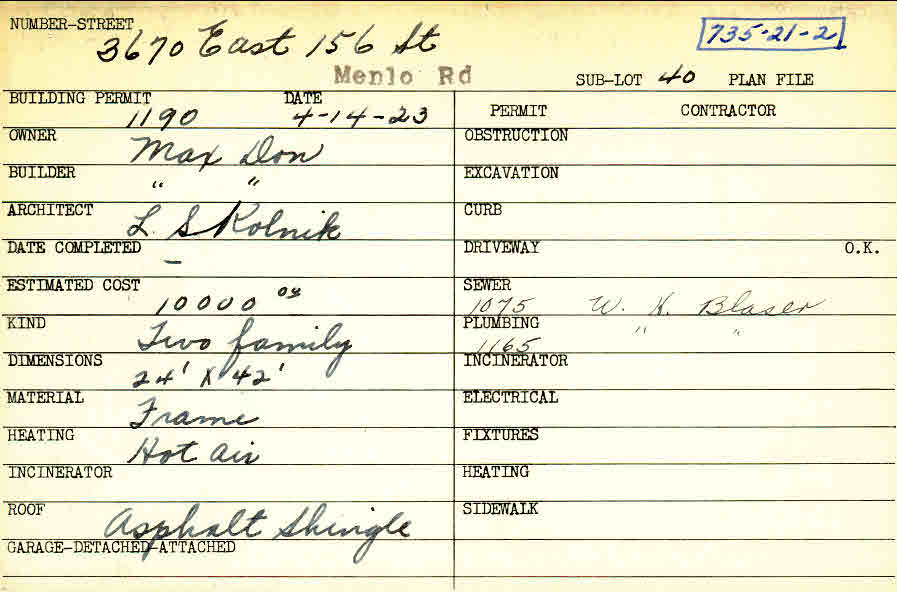 NUMBER-STREET
3670 East 156 St
735-21-2
Menlo Rd
SUB-LOT 40 PLAN FILE
BUILDING PERMIT DATE
1190 4-14-23
PERMIT CONTRACTOR
OWNER
Max Don
OBSTRUCTION
BUILDER
" "
EXCAVATION
ARCHITECT
L. S Kolnik
CURB
DATE COMPLETED
–
DRIVEWAY O.K.
ESTIMATED COST
10000 00
SEWER
1075 W. H. Blaser
KIND
Two family
PLUMBING " "
1165
DIMENSIONS
24' X 42'
INCINERATOR
MATERIAL
Frame
ELECTRICAL
HEATING
Hot air
FIXTURES
INCINERATOR
HEATING
ROOF
Asphalt Shingle
SIDEWALK
GARAGE-DETACHED-ATTACHED